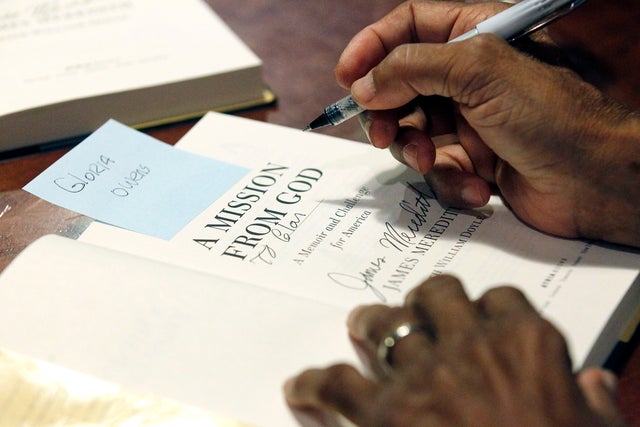 GLORIA
OWENS
A MISSION
FROM GOD
To Glor
A Memoir and Challenge
for America
James Meredith
JAMES MEREDITH
WILLIAM DOYLE